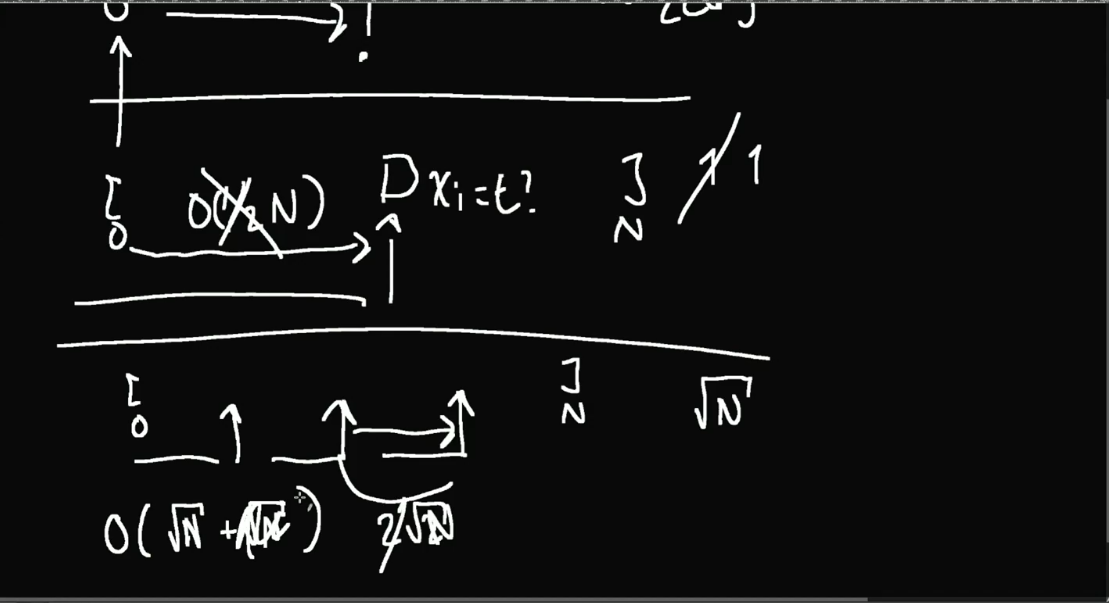 0 !
[ O(½N) D xᵢ=t? ] 1 1
0 N
[ ] √N
0 N
O(√N + ) 2√N